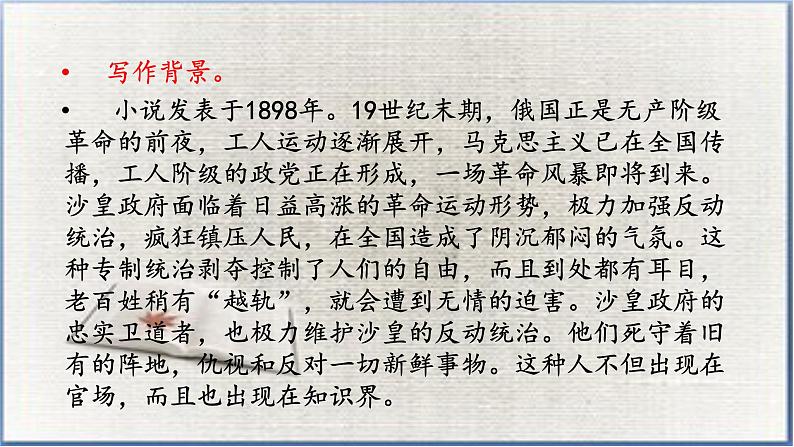 • 写作背景。
• 小说发表于1898年。19世纪末期，俄国正是无产阶级
革命的前夜，工人运动逐渐展开，马克思主义已在全国传
播，工人阶级的政党正在形成，一场革命风暴即将到来。
沙皇政府面临着日益高涨的革命运动形势，极力加强反动
统治，疯狂镇压人民，在全国造成了阴沉郁闷的气氛。这
种专制统治剥夺控制了人们的自由，而且到处都有耳目，
老百姓稍有“越轨”，就会遭到无情的迫害。沙皇政府的
忠实卫道者，也极力维护沙皇的反动统治。他们死守着旧
有的阵地，仇视和反对一切新鲜事物。这种人不但出现在
官场，而且也出现在知识界。